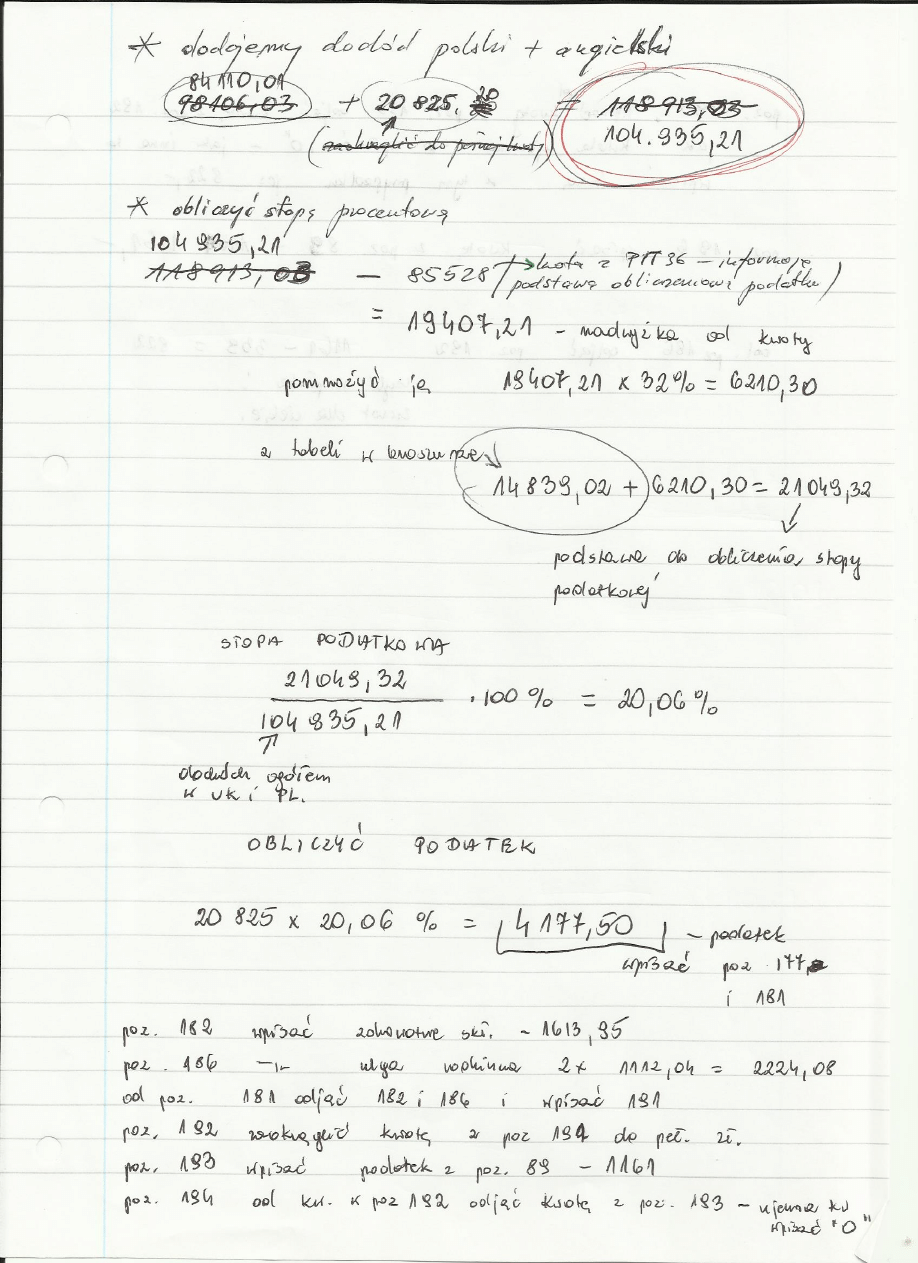 * dodajemy dochód polski + angielski
84110,01
98106,03 + 20 825.20 = 118 913,03
104.935,21
(zaokrąglić do pełnej kwoty)
* obliczyć stopę procentową
104 935,21
118 913,03 - 85528 (→ kwota z PIT 36 - informację
podstawa obliczeniowa podatku)
= 19407,21 - nadwyżka od kwoty
pomnożyć ją 19407,21 x 32% = 6210,30
z tabeli w broszurze
14 839,02 + 6210,30 = 21049,32
podstawa do obliczenia stopy
podatkowej
STOPA PODATKOWA
21049,32
104 935,21
· 100 % = 20,06 %
dochód ogółem
w UK i PL.
OBLICZYĆ PODATEK
20 825 x 20,06 % = 4177,50 - podatek
wpisać poz 177
i 181
poz. 182 wpisać zdrowotne skł. - 1613,95
poz. 186 -||- ulga rodzinna 2x 1112,04 = 2224,08
od poz. 181 odjąć 182 i 186 i wpisać 191
poz. 192 zaokrąglić kwotę z poz 191 do peł. zł.
poz. 193 wpisać podatek z poz. 89 - 1161
poz. 194 od kw. w poz 192 odjąć kwotę z poz. 193 - ujemna kw
wpisać "0"